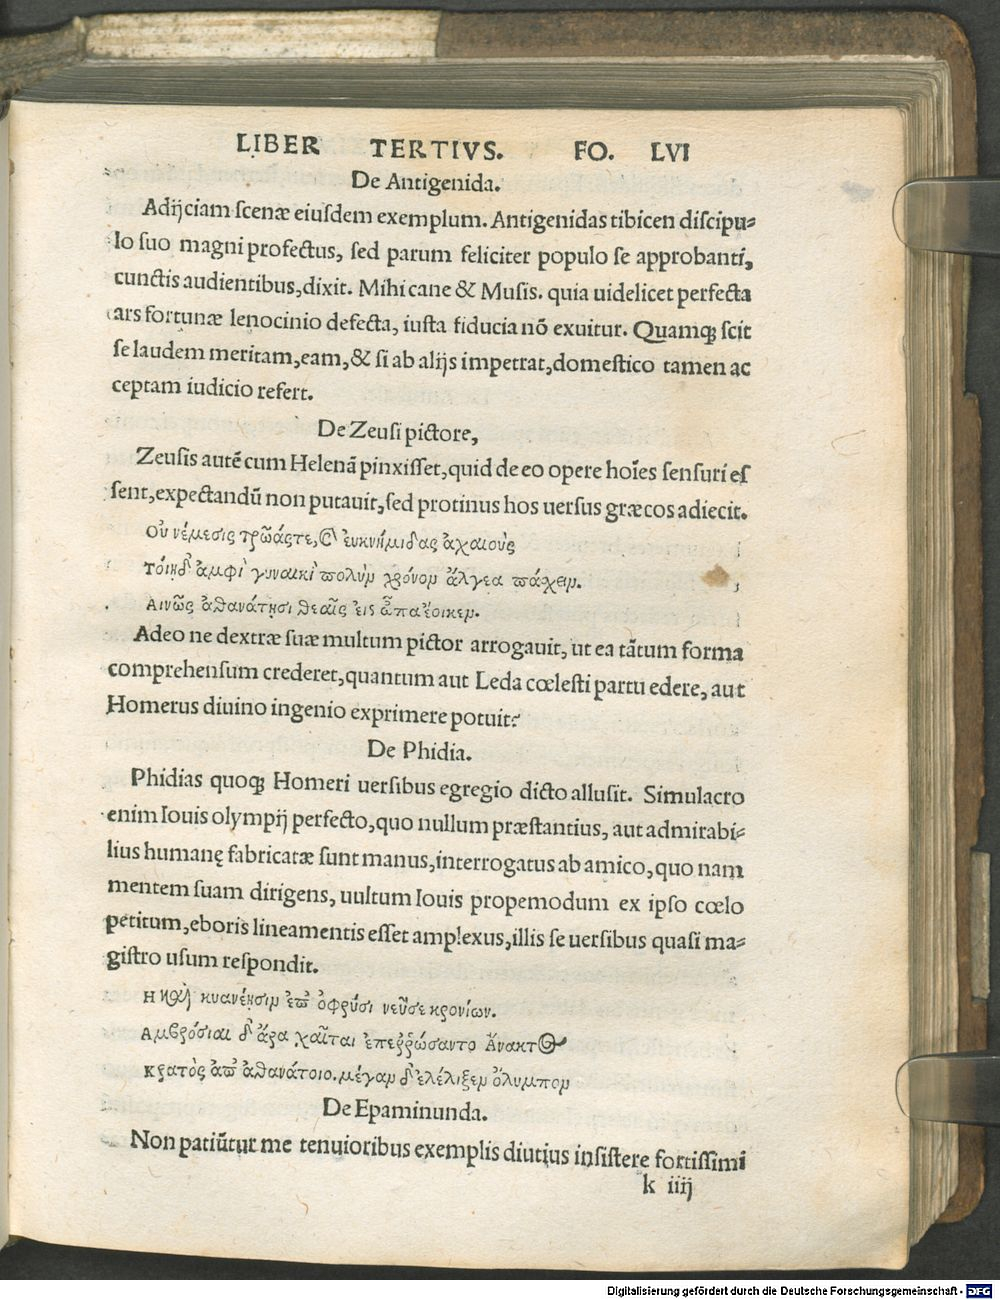 LIBER TERTIVS. FO. LVI
De Antigenida.
Adijciam scenæ eiusdem exemplum. Antigenidas tibicen discipu-
lo suo magni profectus, sed parum feliciter populo se approbanti,
cunctis audientibus, dixit. Mihi cane & Musis. quia uidelicet perfecta
ars fortunæ lenocinio defecta, iusta fiducia nō exuitur. Quamq; scit
se laudem meritam, eam, & si ab alijs impetrat, domestico tamen ac
ceptam iudicio refert.
De Zeusi pictore,
Zeusis autē cum Helenā pinxisset, quid de eo opere hoīes sensuri es
sent, expectandū non putauit, sed protinus hos uersus græcos adiecit.
Οὐ νέμεσις τρῶάςτε, ϗ ἐυκνήμιδας ἀχαιοὺς
τόιηδ' ἀμφὶ γυναικὶ πολὺν χρόνον ἄλγεα πάχειν.
Αινῶς ἀθανάτησι θεαῖς ἐις ὦπα ἔοικεν.
Adeo ne dextræ suæ multum pictor arrogauit, ut ea tātum forma
comprehensum crederet, quantum aut Leda cœlesti partu edere, aut
Homerus diuino ingenio exprimere potuit?
De Phidia.
Phidias quoq; Homeri uersibus egregio dicto allusit. Simulacro
enim Iouis olympij perfecto, quo nullum præstantius, aut admirabi-
lius humanę fabricatæ sunt manus, interrogatus ab amico, quo nam
mentem suam dirigens, uultum Iouis propemodum ex ipso cœlo
petitum, eboris lineamentis esset amplexus, illis se uersibus quasi ma-
gistro usum respondit.
Η κὴ κυανέησιν ἐπ' ὀφρύσι νεῦσε κρονίων.
Αμβρόσιαι δ' ἄρα χαῖται ἐπερρώσαντο Ἄνακτος
κρατὸς ἀπ' ἀθανάτοιο. μέγαν δ' ἐλέλιξεν ὄλυμπον
De Epaminunda.
Non patiūtur me tenuioribus exemplis diutius insistere fortissimi
k iiij
Digitalisierung gefördert durch die Deutsche Forschungsgemeinschaft - DFG